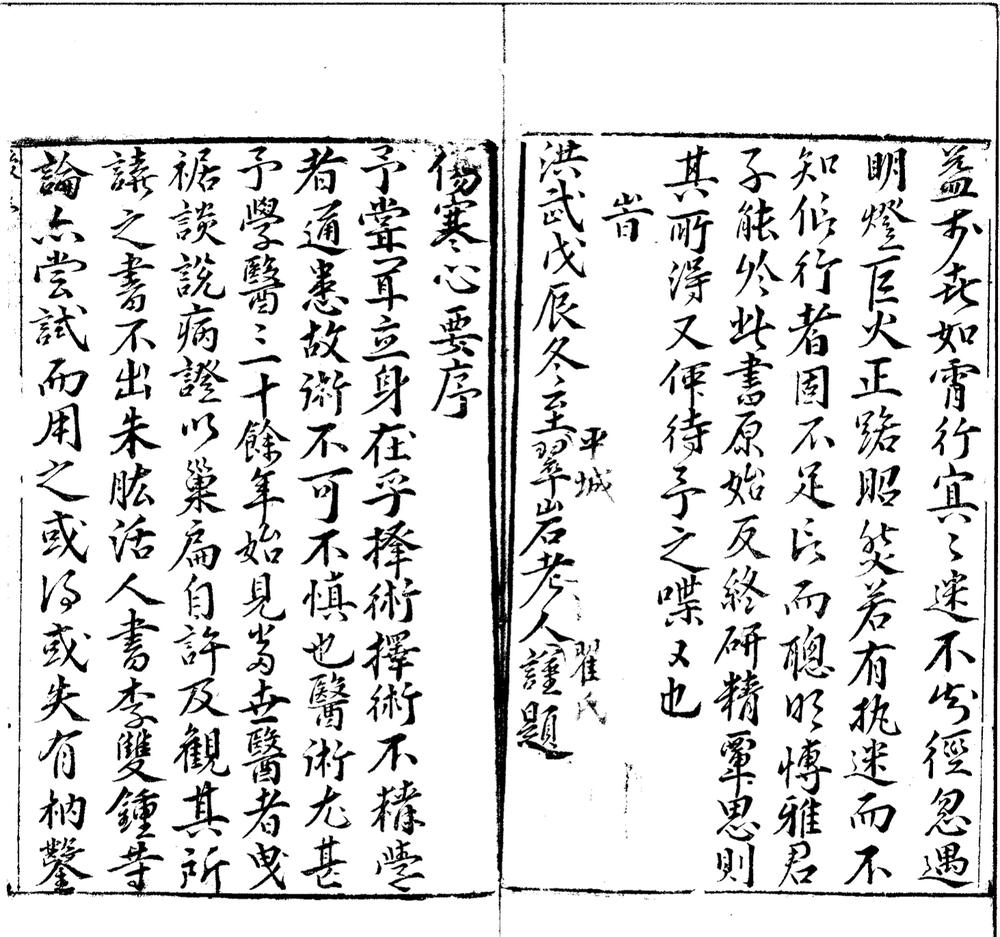 益本矣如霄行寞〻迷不知徑忽遇
明燈巨火正路昭然若有執迷而不
知信行者固不足言而聰明博雅君
子能於此書原始反終研精覃思則
其所得又何待予之喋又也
旹
洪武戊辰冬至翠岩老人謹題
平城
翟氏
傷寒心要序
予甞謂立身在乎擇術擇術不精學
者通患故術不可不慎也醫術尤甚
予學醫三二十餘年始見當世醫者曳
裾談說病證以巢扁自許及觀其所
讀之書不出朱肱活人書李雙鍾等
論亦嘗試而用之或得或失有枘鑿